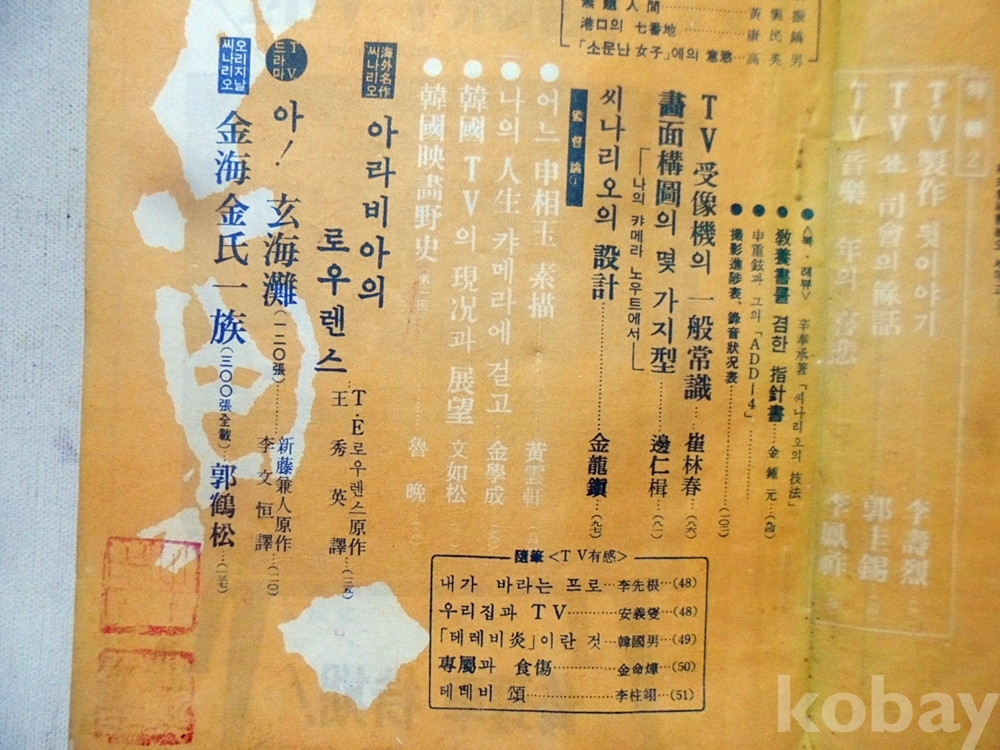 港口의 七番地……康民鎬
「소문난 女子」에의 意慾…高英男
TV 製作 뒷이야기 李壽烈
TV쑈 司會의 餘話 郭圭錫
TV 音樂
李鳳祚
●〈북·레뷰〉 辛奉承著「씨나리오의 技法」
●敎養書를 겸한 指針書……金鍾元…(九四)
●申重鉉과 그의「ADD—4」
●撮影進陟表、錄音狀況表……(一〇三)
TV受像機의 一般常識……崔林春…(八六)
畫面構圖의 몇 가지型……邊仁楫…(八一)
「나의 캬메라 노우트에서」
씨나리오의 設計……金龍鎭…(九七)
監督論①
●어느 申相玉 素描……黃雲軒
●나의 人生 캬메라에 걸고……金學成
●韓國TV의 現況과 展望……文如松
●韓國映畫野史(第一回)……魯晩
海外名作씨나리오
아라비아의 로우렌스…T·E로우렌스原作
王秀英 譯…(一三五)
TV드라마
아! 玄海灘(一二〇張)……新藤兼人原作
李文恒 譯…(一一〇)
오리지날씨나리오
金海金氏一族(三〇〇張全載)…郭鶴松…(一六七)
隨筆<TV有感>
내가 바라는 프로…李先根…(48)
우리집과 TV………安義燮…(48)
「테레비炎」이란 것…韓國男…(49)
專屬과 食傷…………金命燁…(50)
테레비 頌……………李柱翊…(51)
kobay